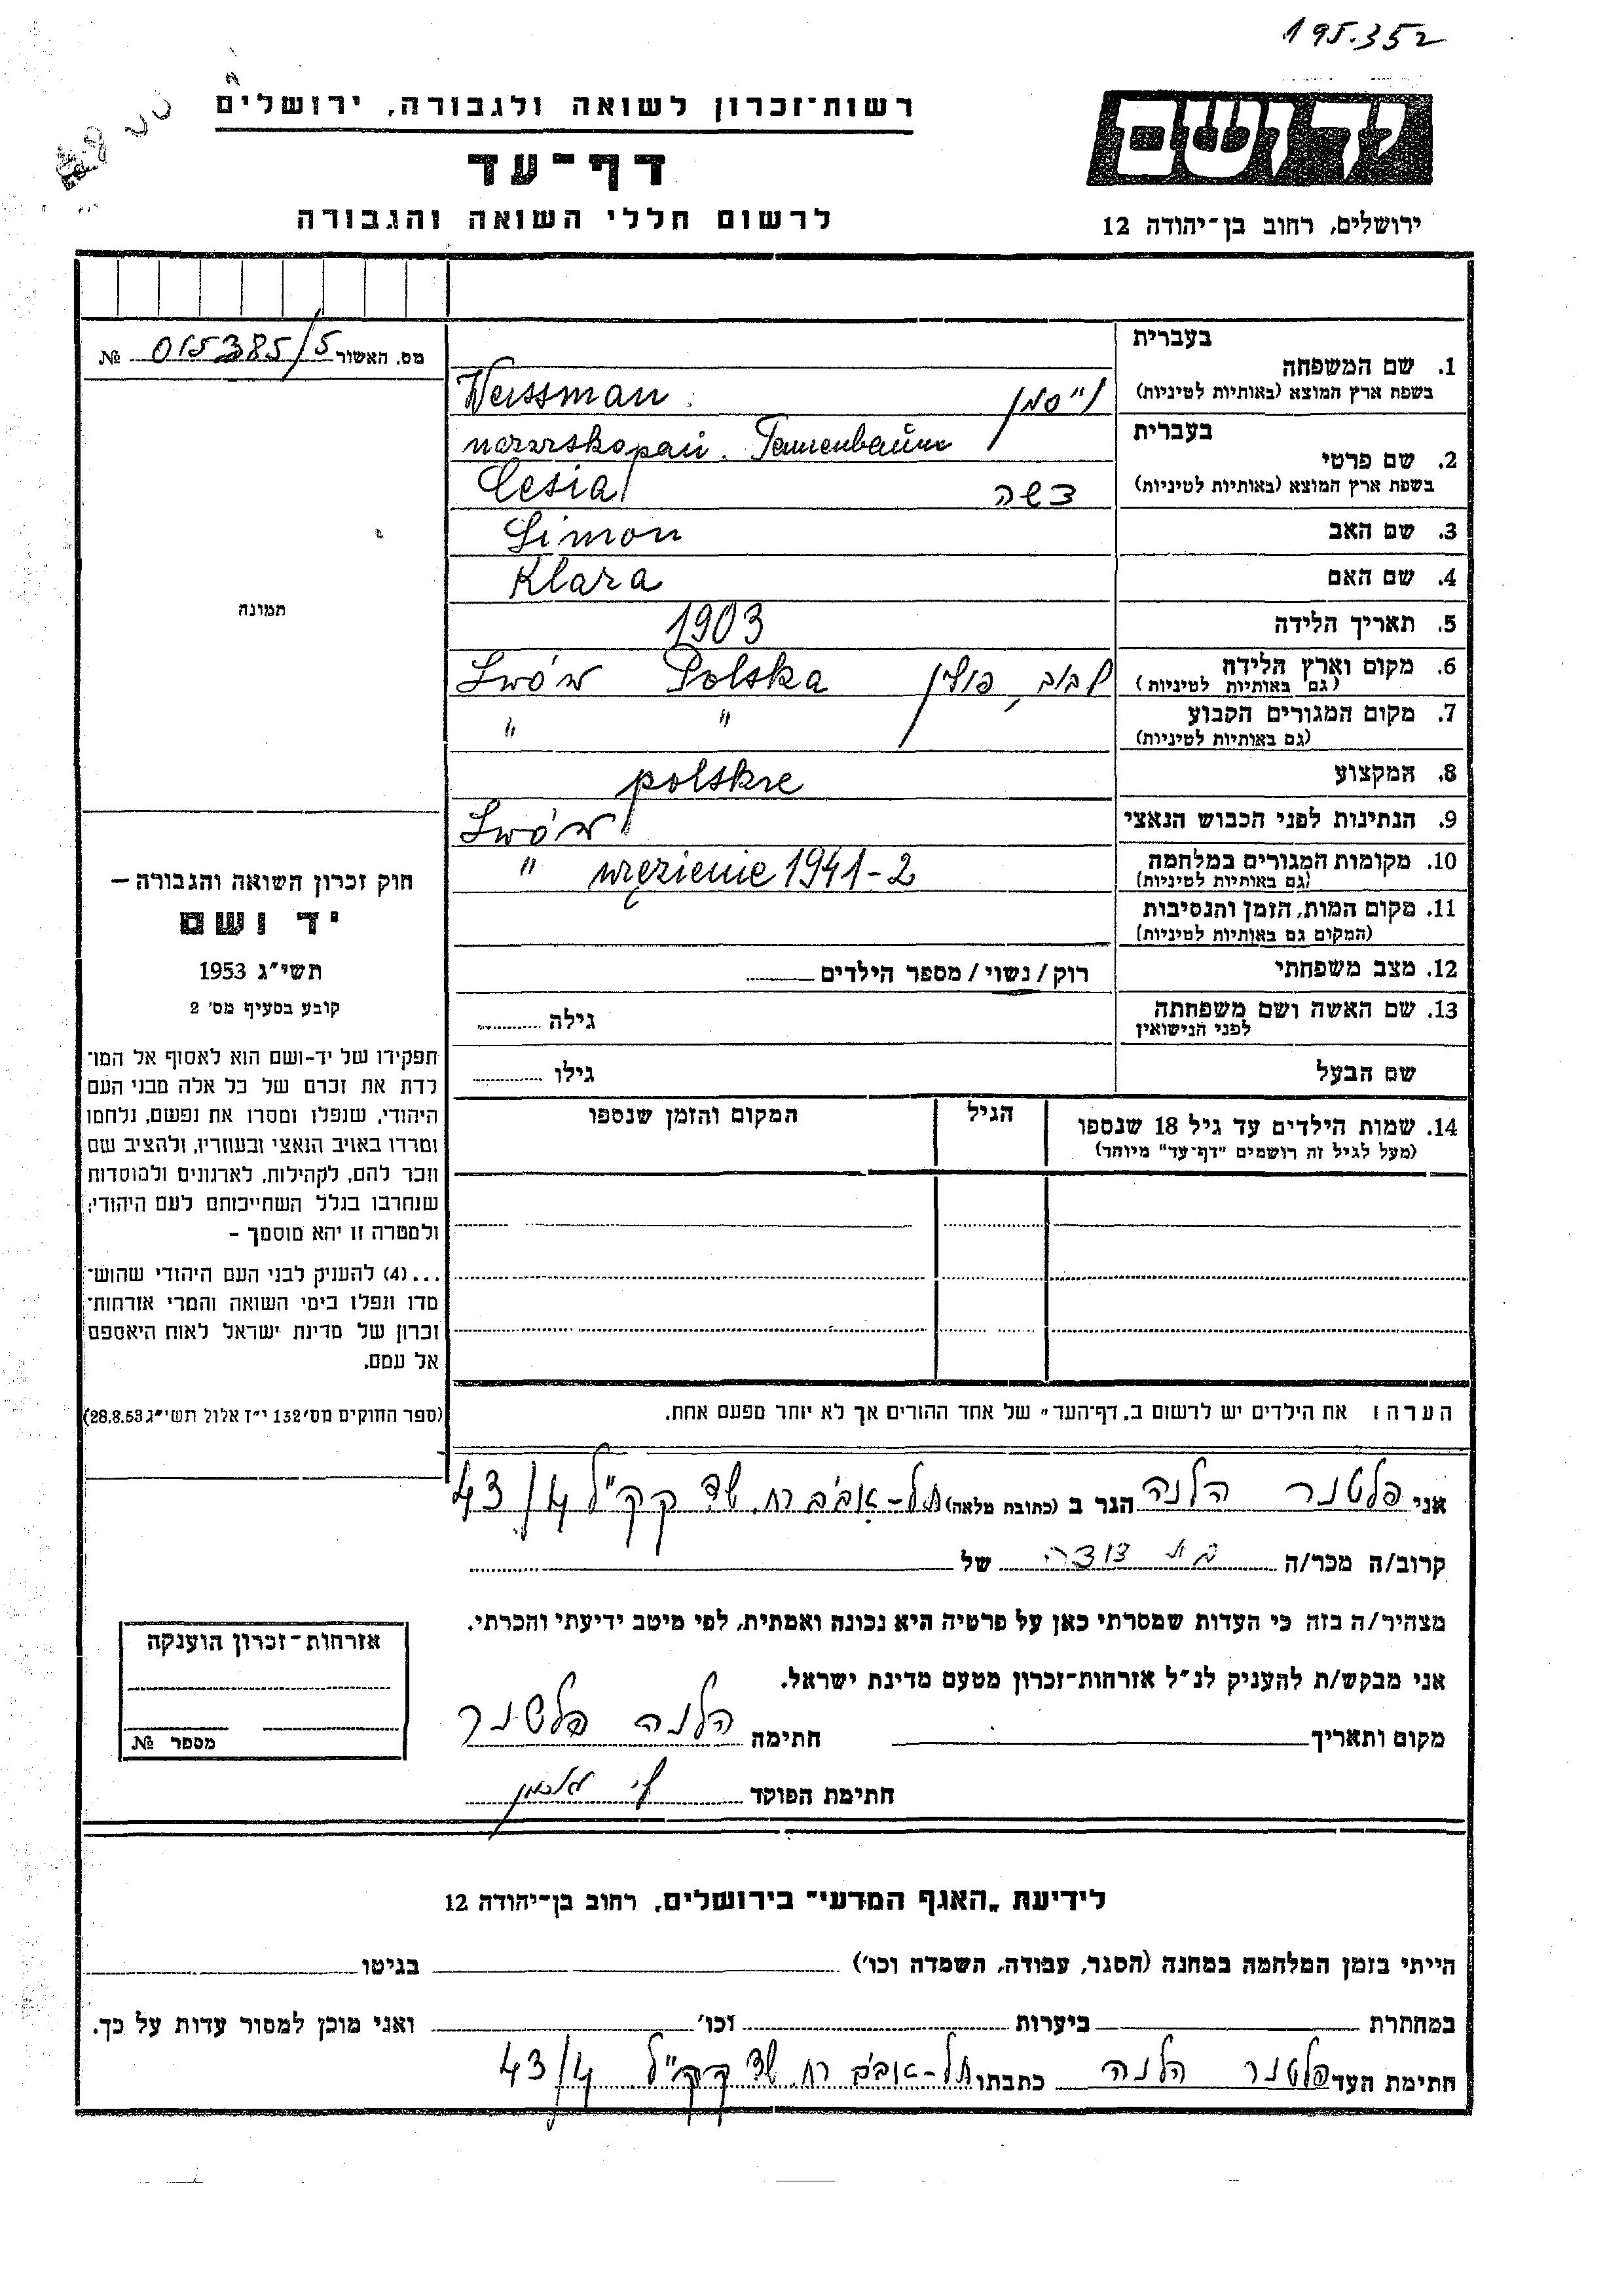 195.352
רשות־זכרון לשואה ולגבורה, ירושלים
דף־עד
לרשום חללי השואה והגבורה
יד ושם
ירושלים, רחוב בן־יהודה 12
מס. האשור 015385/5 №
תמונה
1. שם המשפחה
בעברית
בשפת ארץ המוצא (באותיות לטיניות)
Weissman וייסמן
2. שם פרטי
בעברית
בשפת ארץ המוצא (באותיות לטיניות)
Tannenbaum
Cesia צשה
3. שם האב Simon
4. שם האם Klara
5. תאריך הלידה 1903
6. מקום וארץ הלידה
(גם באותיות לטיניות)
Lwów Polska לבוב, פולין
7. מקום המגורים הקבוע
(גם באותיות לטיניות)
" "
8. המקצוע
polskie
9. הנתינות לפני הכבוש הנאצי
Lwów
10. מקומות המגורים במלחמה
(גם באותיות לטיניות)
" więzienie 1941-2
11. מקום המות, הזמן והנסיבות
(המקום גם באותיות לטיניות)
12. מצב משפחתי רוק/נשוי/מספר הילדים
13. שם האשה ושם משפחתה
לפני הנישואין
גילה
שם הבעל גילו
14. שמות הילדים עד גיל 18 שנספו
(מעל לגיל זה רושמים "דף־עד" מיוחד)
הגיל
המקום והזמן שנספו
הערה: את הילדים יש לרשום ב„דף־העד" של אחד ההורים אך לא יותר מפעם אחת.
חוק זכרון השואה והגבורה –
יד ושם
תשי"ג 1953
קובע בסעיף מס' 2
תפקידו של יד-ושם הוא לאסוף אל המו־
לדת את זכרם של כל אלה מבני העם
היהודי, שנפלו ומסרו את נפשם, נלחמו
ומרדו באויב הנאצי ובעוזריו, ולהציב שם
וזכר להם, לקהילות, לארגונים ולמוסדות
שנחרבו בגלל השתייכותם לעם היהודי;
ולמטרה זו יהא מוסמך –
...(4) להעניק לבני העם היהודי שהוש־
מדו ונפלו בימי השואה והמרי אזרחות־
זכרון של מדינת ישראל לאות היאספם
אל עמם.
(ספר החוקים מס' 132 י"ז אלול תשי"ג 28.8.53)
אני פלטנר הלנה הגר ב (כתובת מלאה) תל-אביב רח. שד קק"ל 43/4
קרוב/ה מכר/ה בת דודה של
מצהיר/ה בזה כי העדות שמסרתי כאן על פרטיה היא נכונה ואמתית, לפי מיטב ידיעתי והכרתי.
אני מבקש/ת להעניק לנ"ל אזרחות־זכרון מטעם מדינת ישראל.
מקום ותאריך חתימה הלנה פלטנר
חתימת הפוקד
אזרחות־זכרון הוענקה
מספר №
לידיעת „האגף המדעי" בירושלים, רחוב בן־יהודה 12
הייתי בזמן המלחמה במחנה (הסגר, עבודה, השמדה וכו') בגיטו
במחתרת ביערות וכו' ואני מוכן למסור עדות על כך.
חתימת העד פלטנר הלנה כתבתו תל-אביב רח. שד קק"ל 43/4